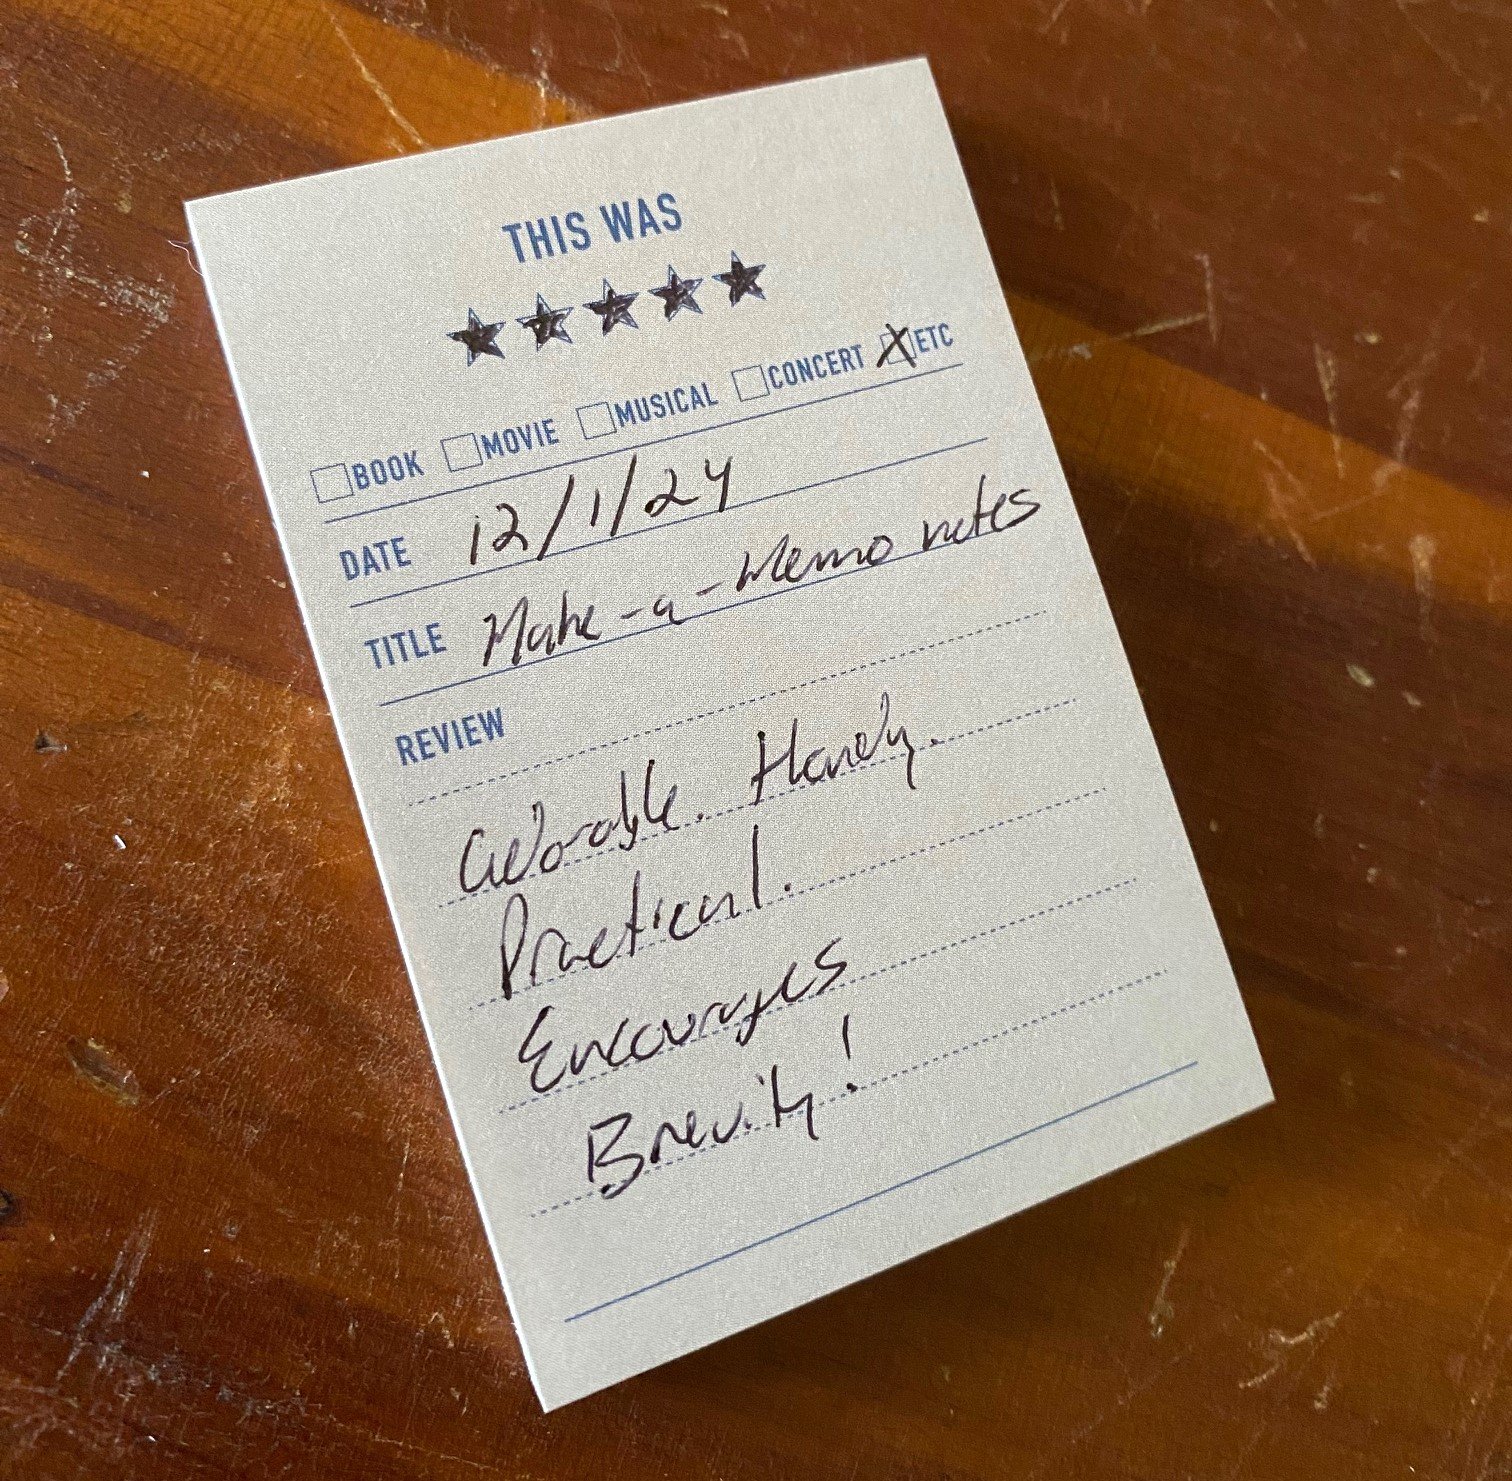 THIS WAS
★★★★★
☐BOOK ☐MOVIE ☐MUSICAL ☐CONCERT ☒ETC
DATE 12/1/24
TITLE Make-a-Memo notes
REVIEW
Adorable. Handy.
Practical.
Encourages
Brevity!